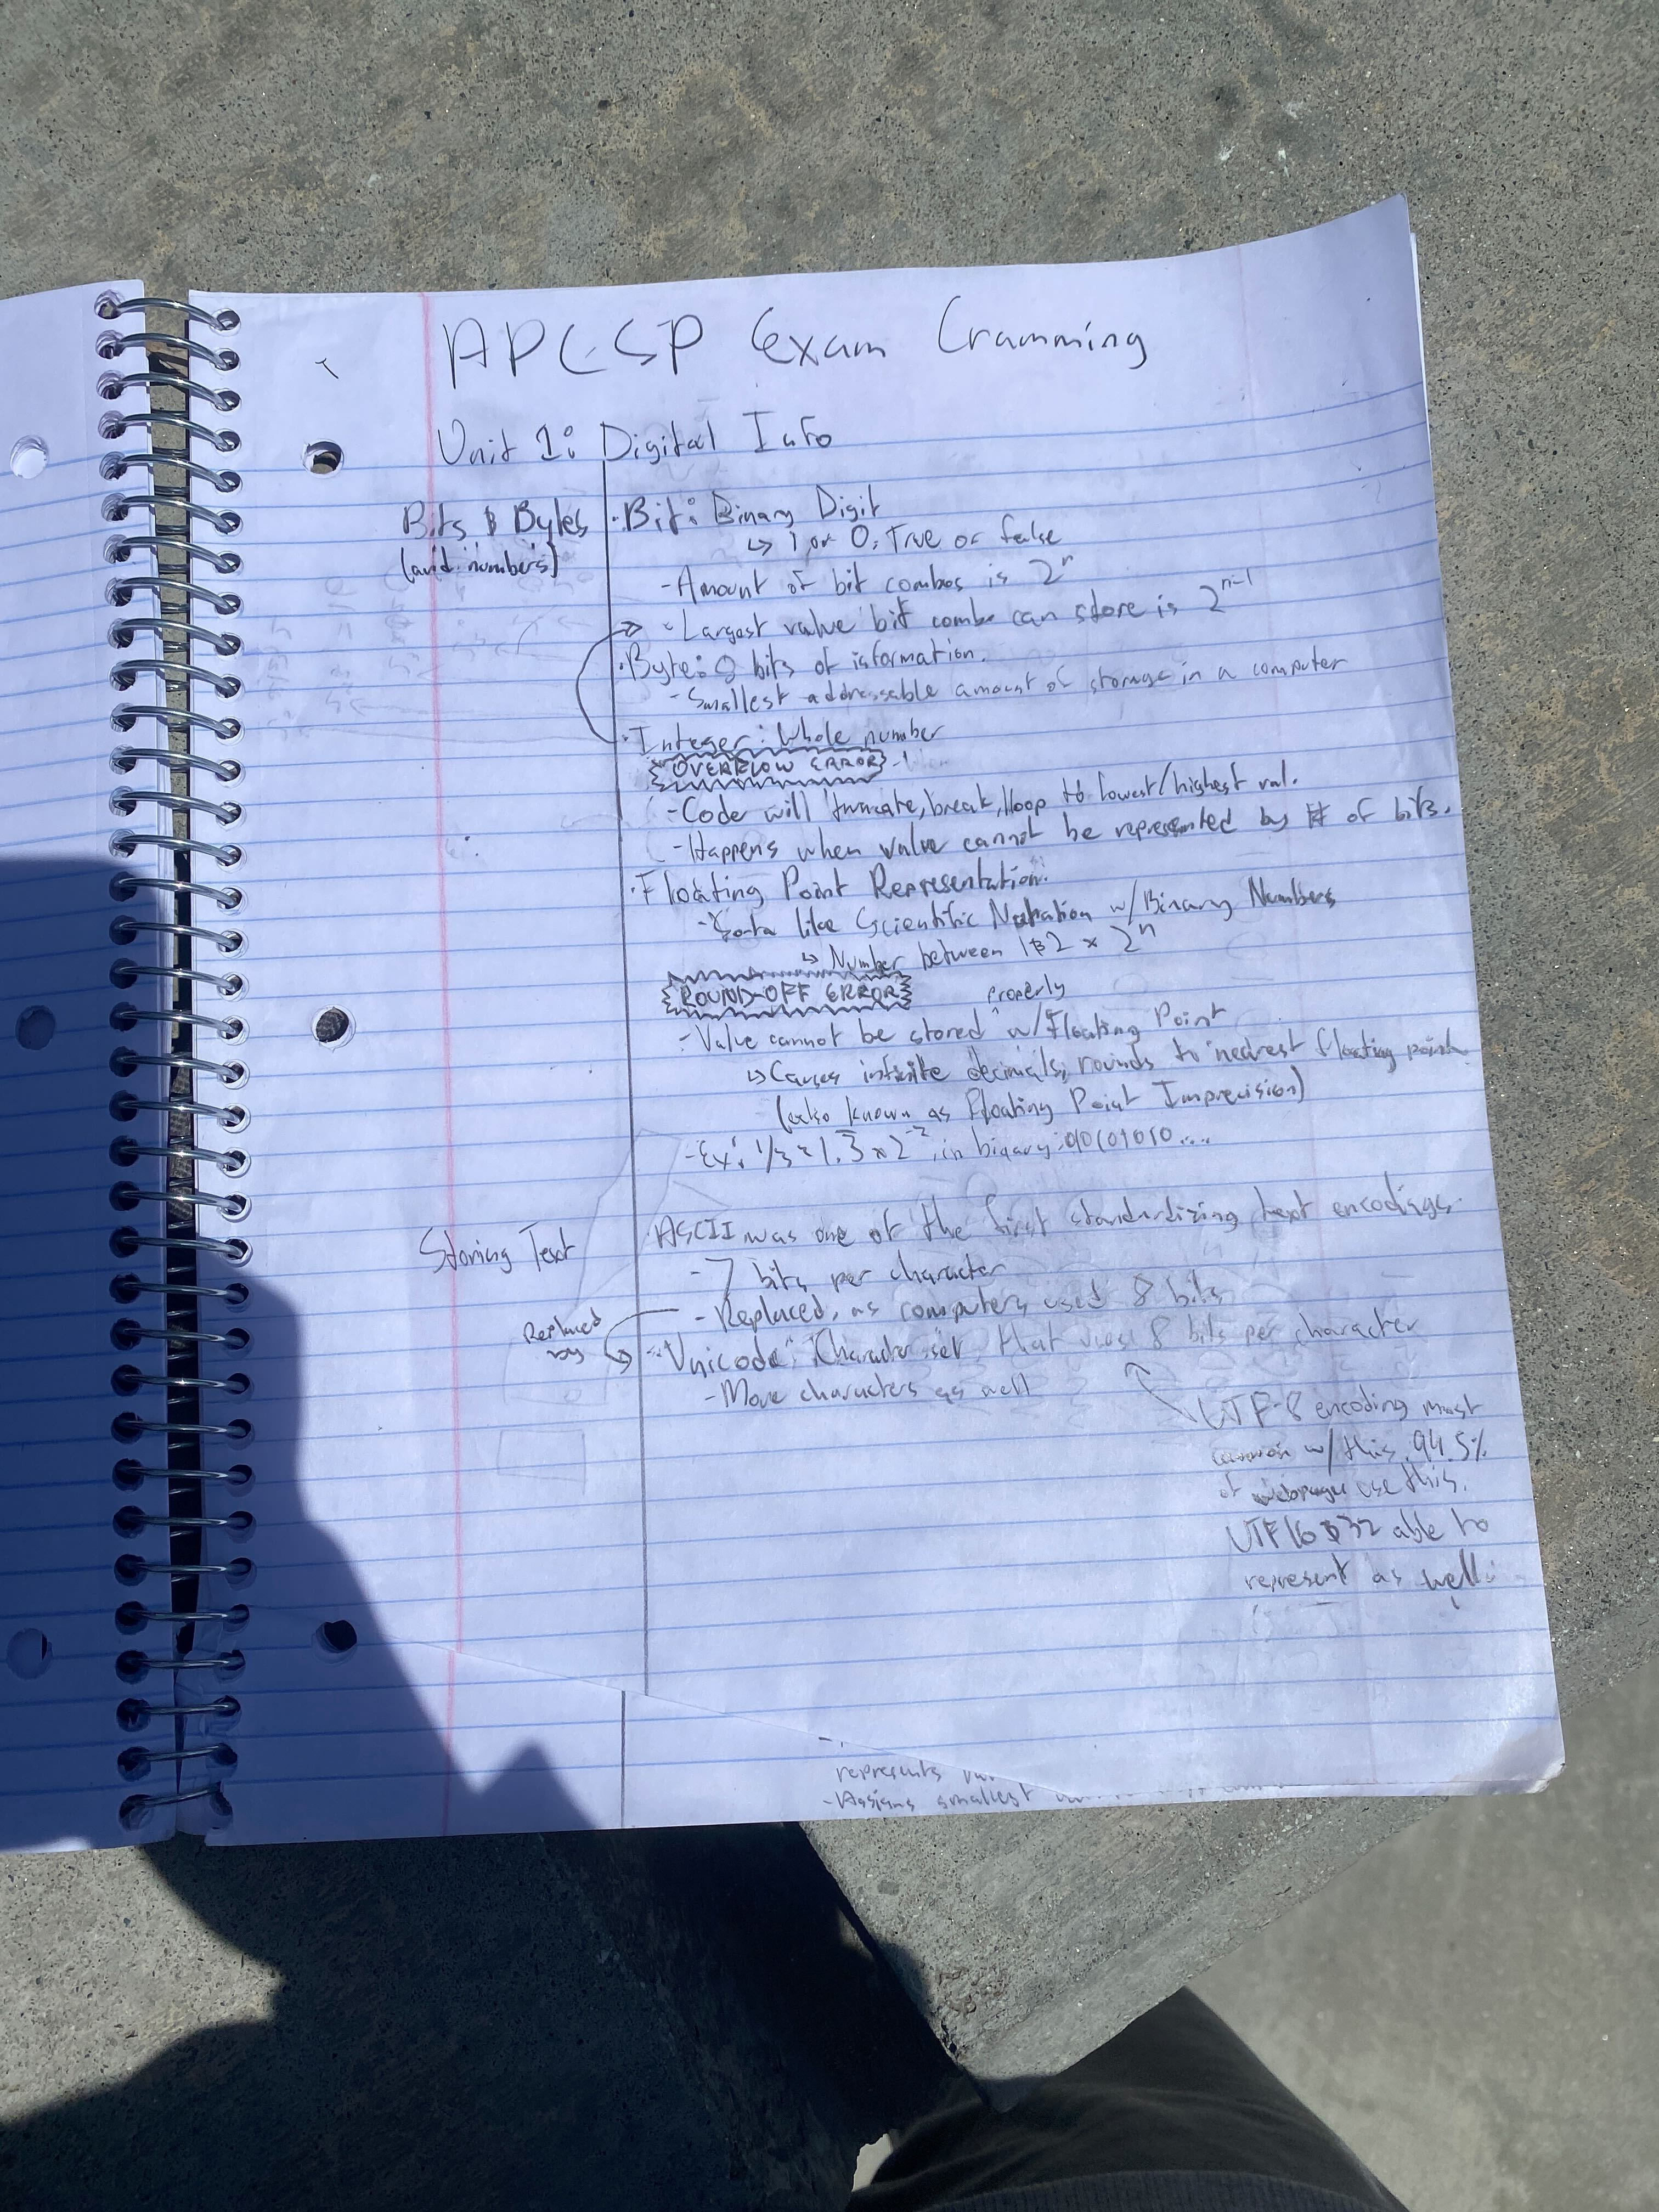 APCSP Exam Cramming
Unit 1: Digital Info
Bits & Bytes
(and numbers)
· Bit: Binary Digit
↳ 1 or 0, True or false
- Amount of bit combos is 2ⁿ
- Largest value bit combo can store is 2ⁿ⁻¹
· Byte: 8 bits of information.
- Smallest addressable amount of storage in a computer
· Integer: Whole number
OVERFLOW ERROR
- Code will truncate, break, loop to lowest/highest val.
- Happens when value cannot be represented by # of bits.
· Floating Point Representation:
- Sorta like Scientific Notation w/ Binary Numbers
↳ Number between 1 & 2 × 2ⁿ
ROUND-OFF ERROR
- Value cannot be stored ^properly w/ Floating Point
↳ Causes infinite decimals, rounds to nearest floating point
(also known as Floating Point Imprecision)
- Ex: 1/3 = 1.3̅ × 2⁻², in binary: 01010101010....
Storing Text
ASCII was one of the first standardizing text encodings
- 7 bits per character
- Replaced, as computers used 8 bits
Replaced
by
Unicode: Character set that uses 8 bits per character
- More characters as well
UTF-8 encoding most
common w/ this. 94.5%
of webpages use this.
UTF 16 & 32 able to
represent as well.
represents
- Assigns smallest